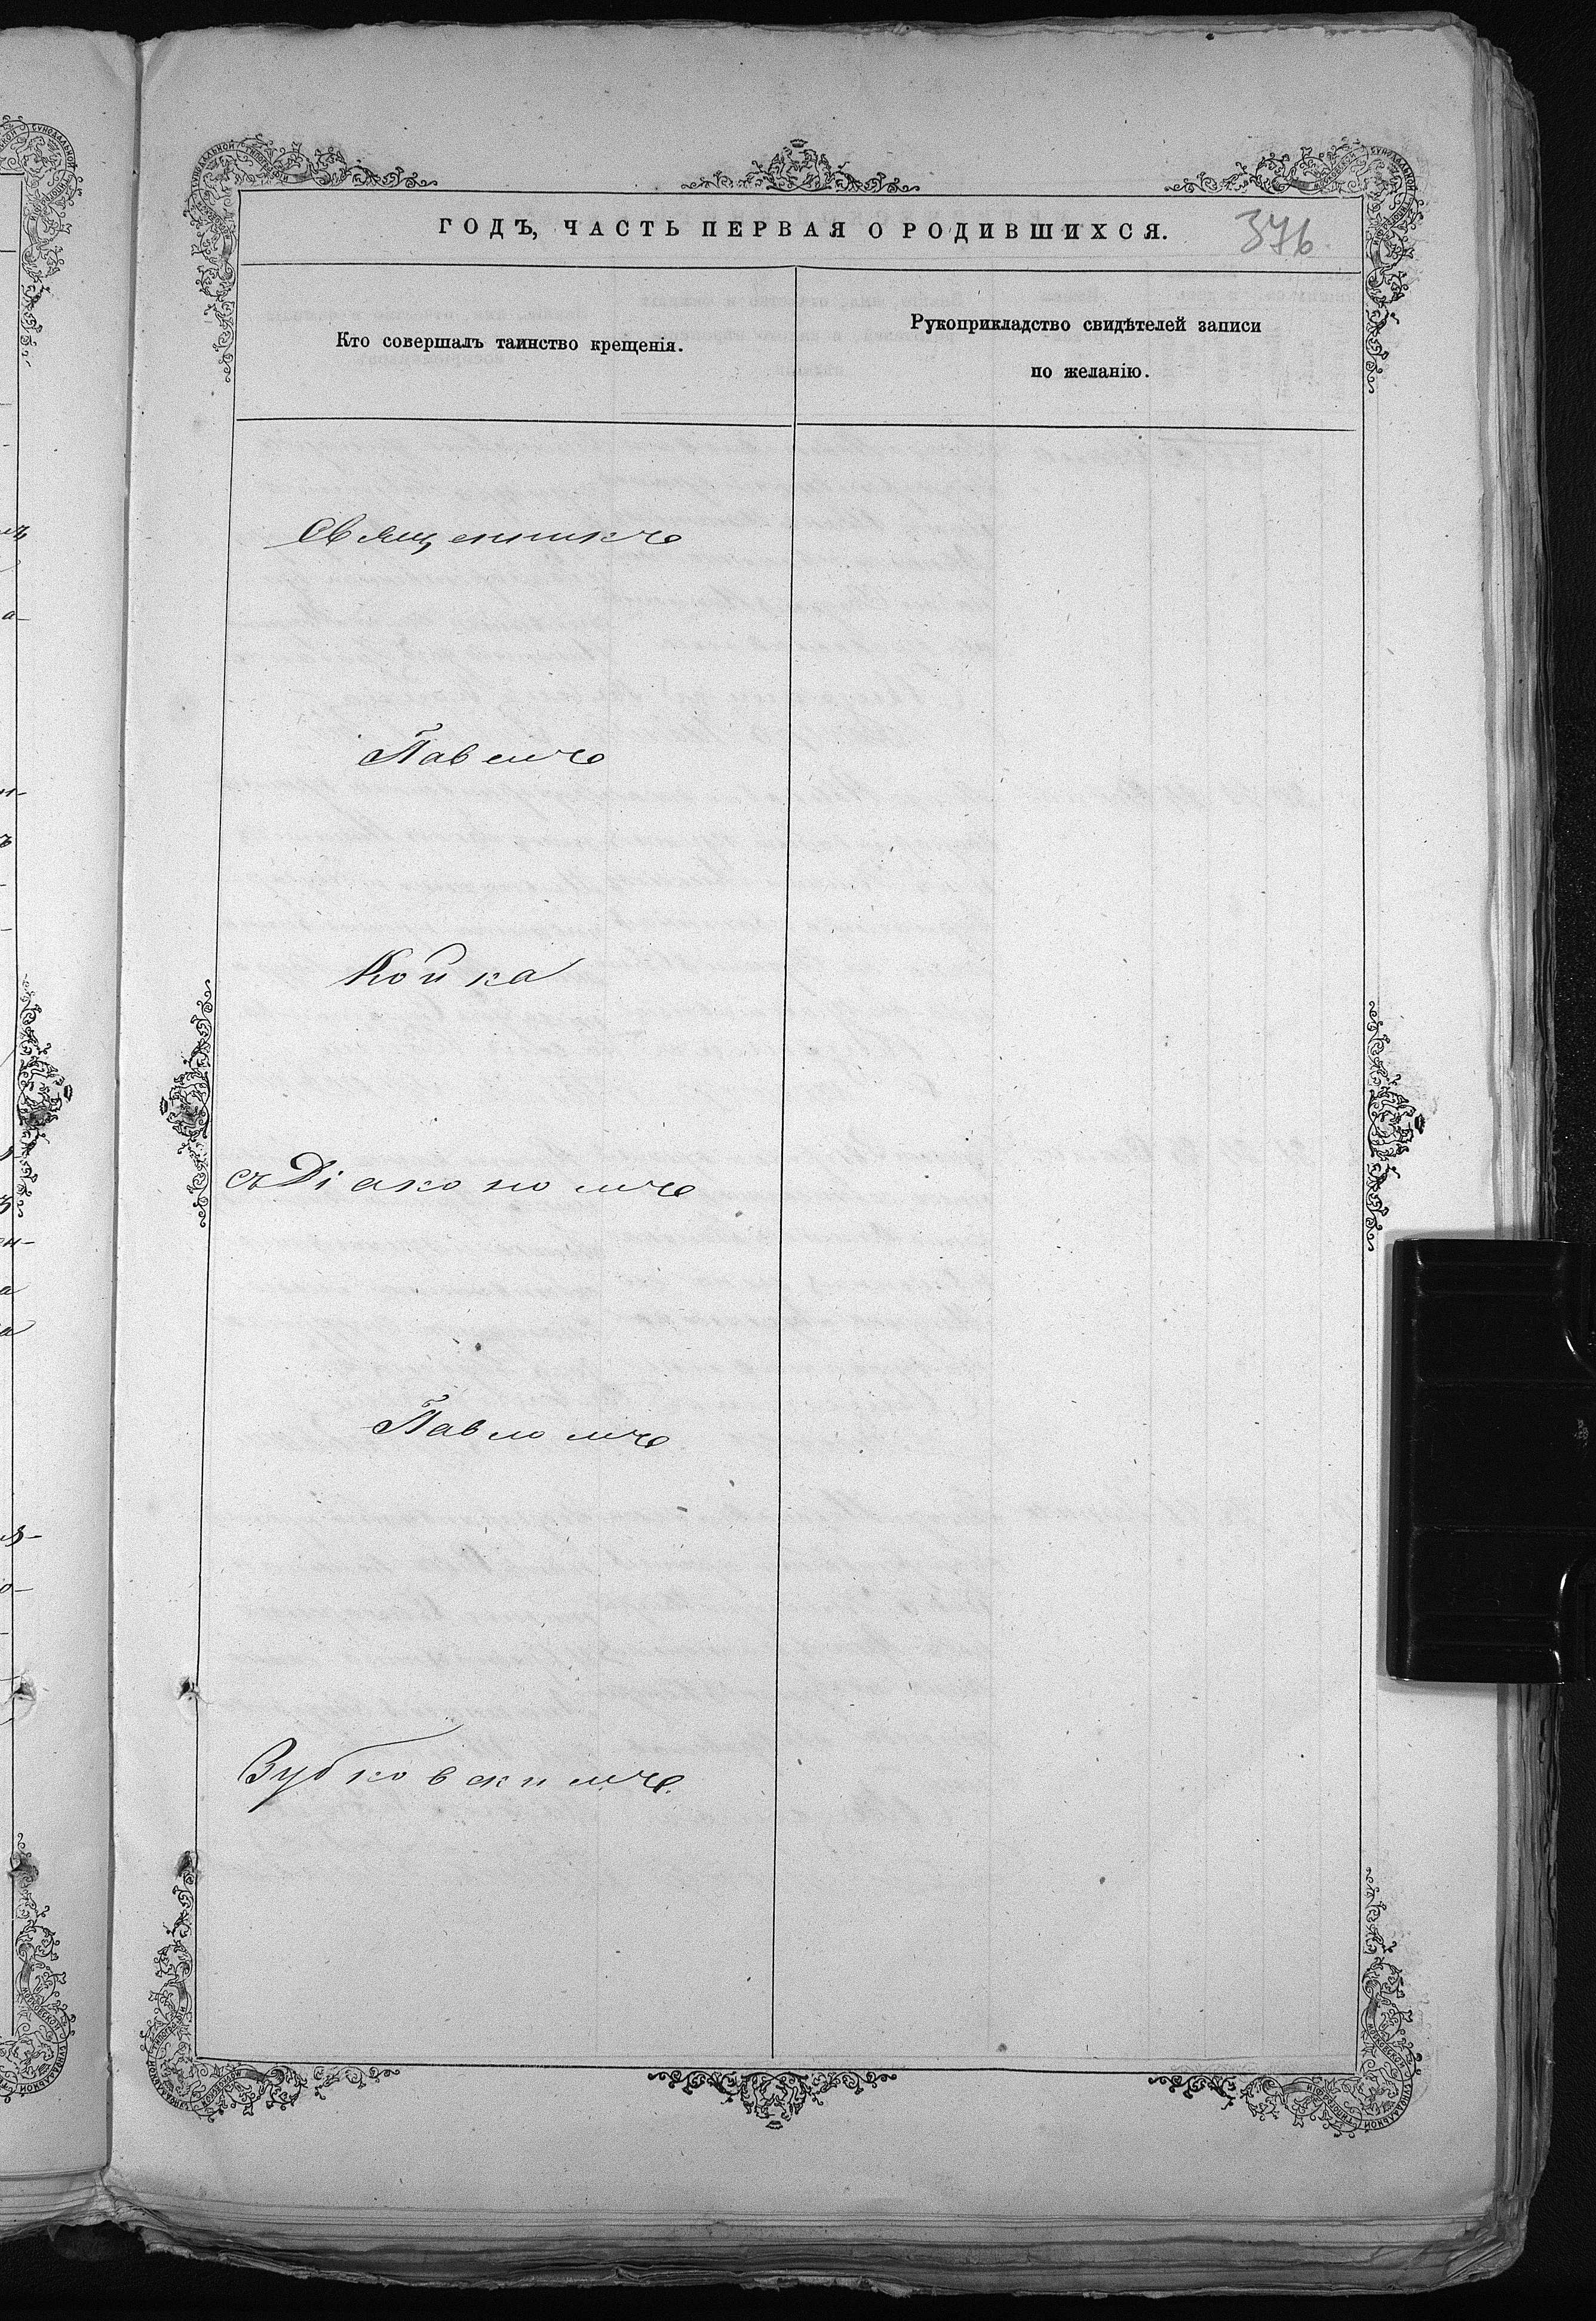 ГОДЪ, ЧАСТЬ ПЕРВАЯ О РОДИВШИХСЯ.
376
Кто совершалъ таинство крещенія.
Рукоприкладство свидѣтелей записи
по желанію.
Священникъ
Павелъ
Койка
съ Діакономъ
Павломъ
Зубковскимъ